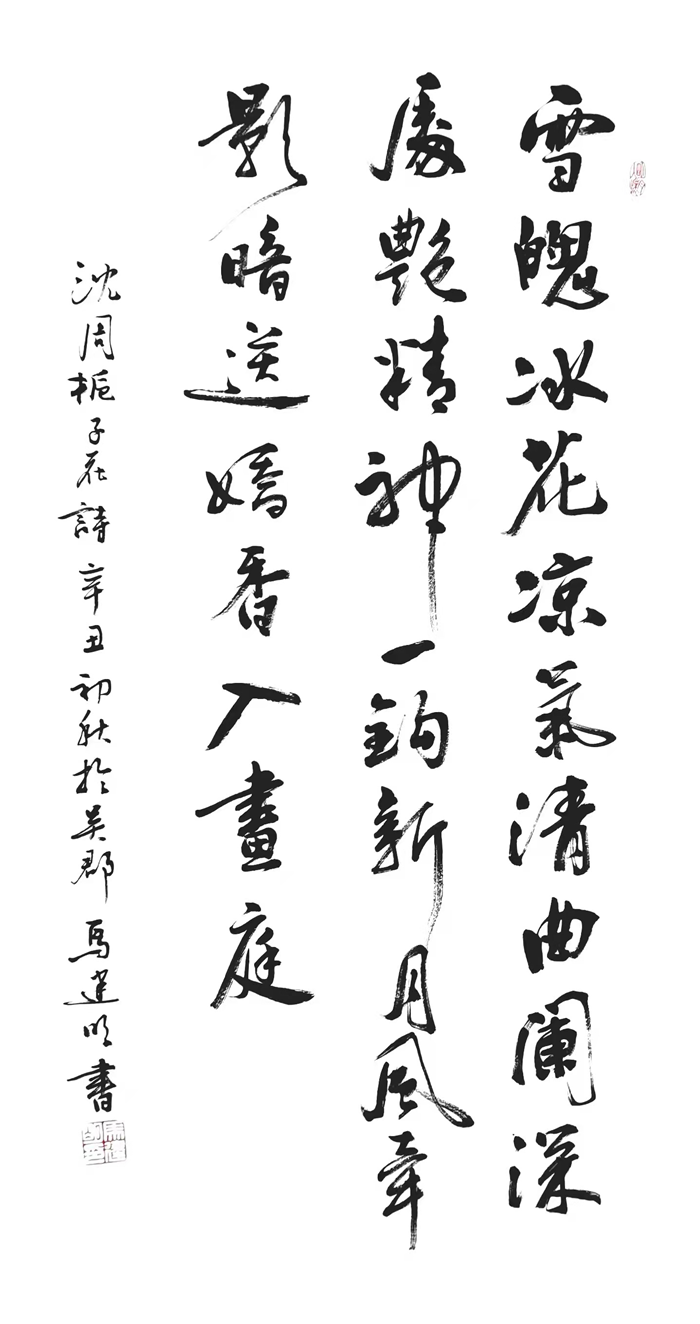 雪魄冰花凉氣清曲闌深
處艷精神一鉤新月風牽
影暗送嬌香入畫庭
沈周梔子花詩辛丑初秋於吳郡馬建明書